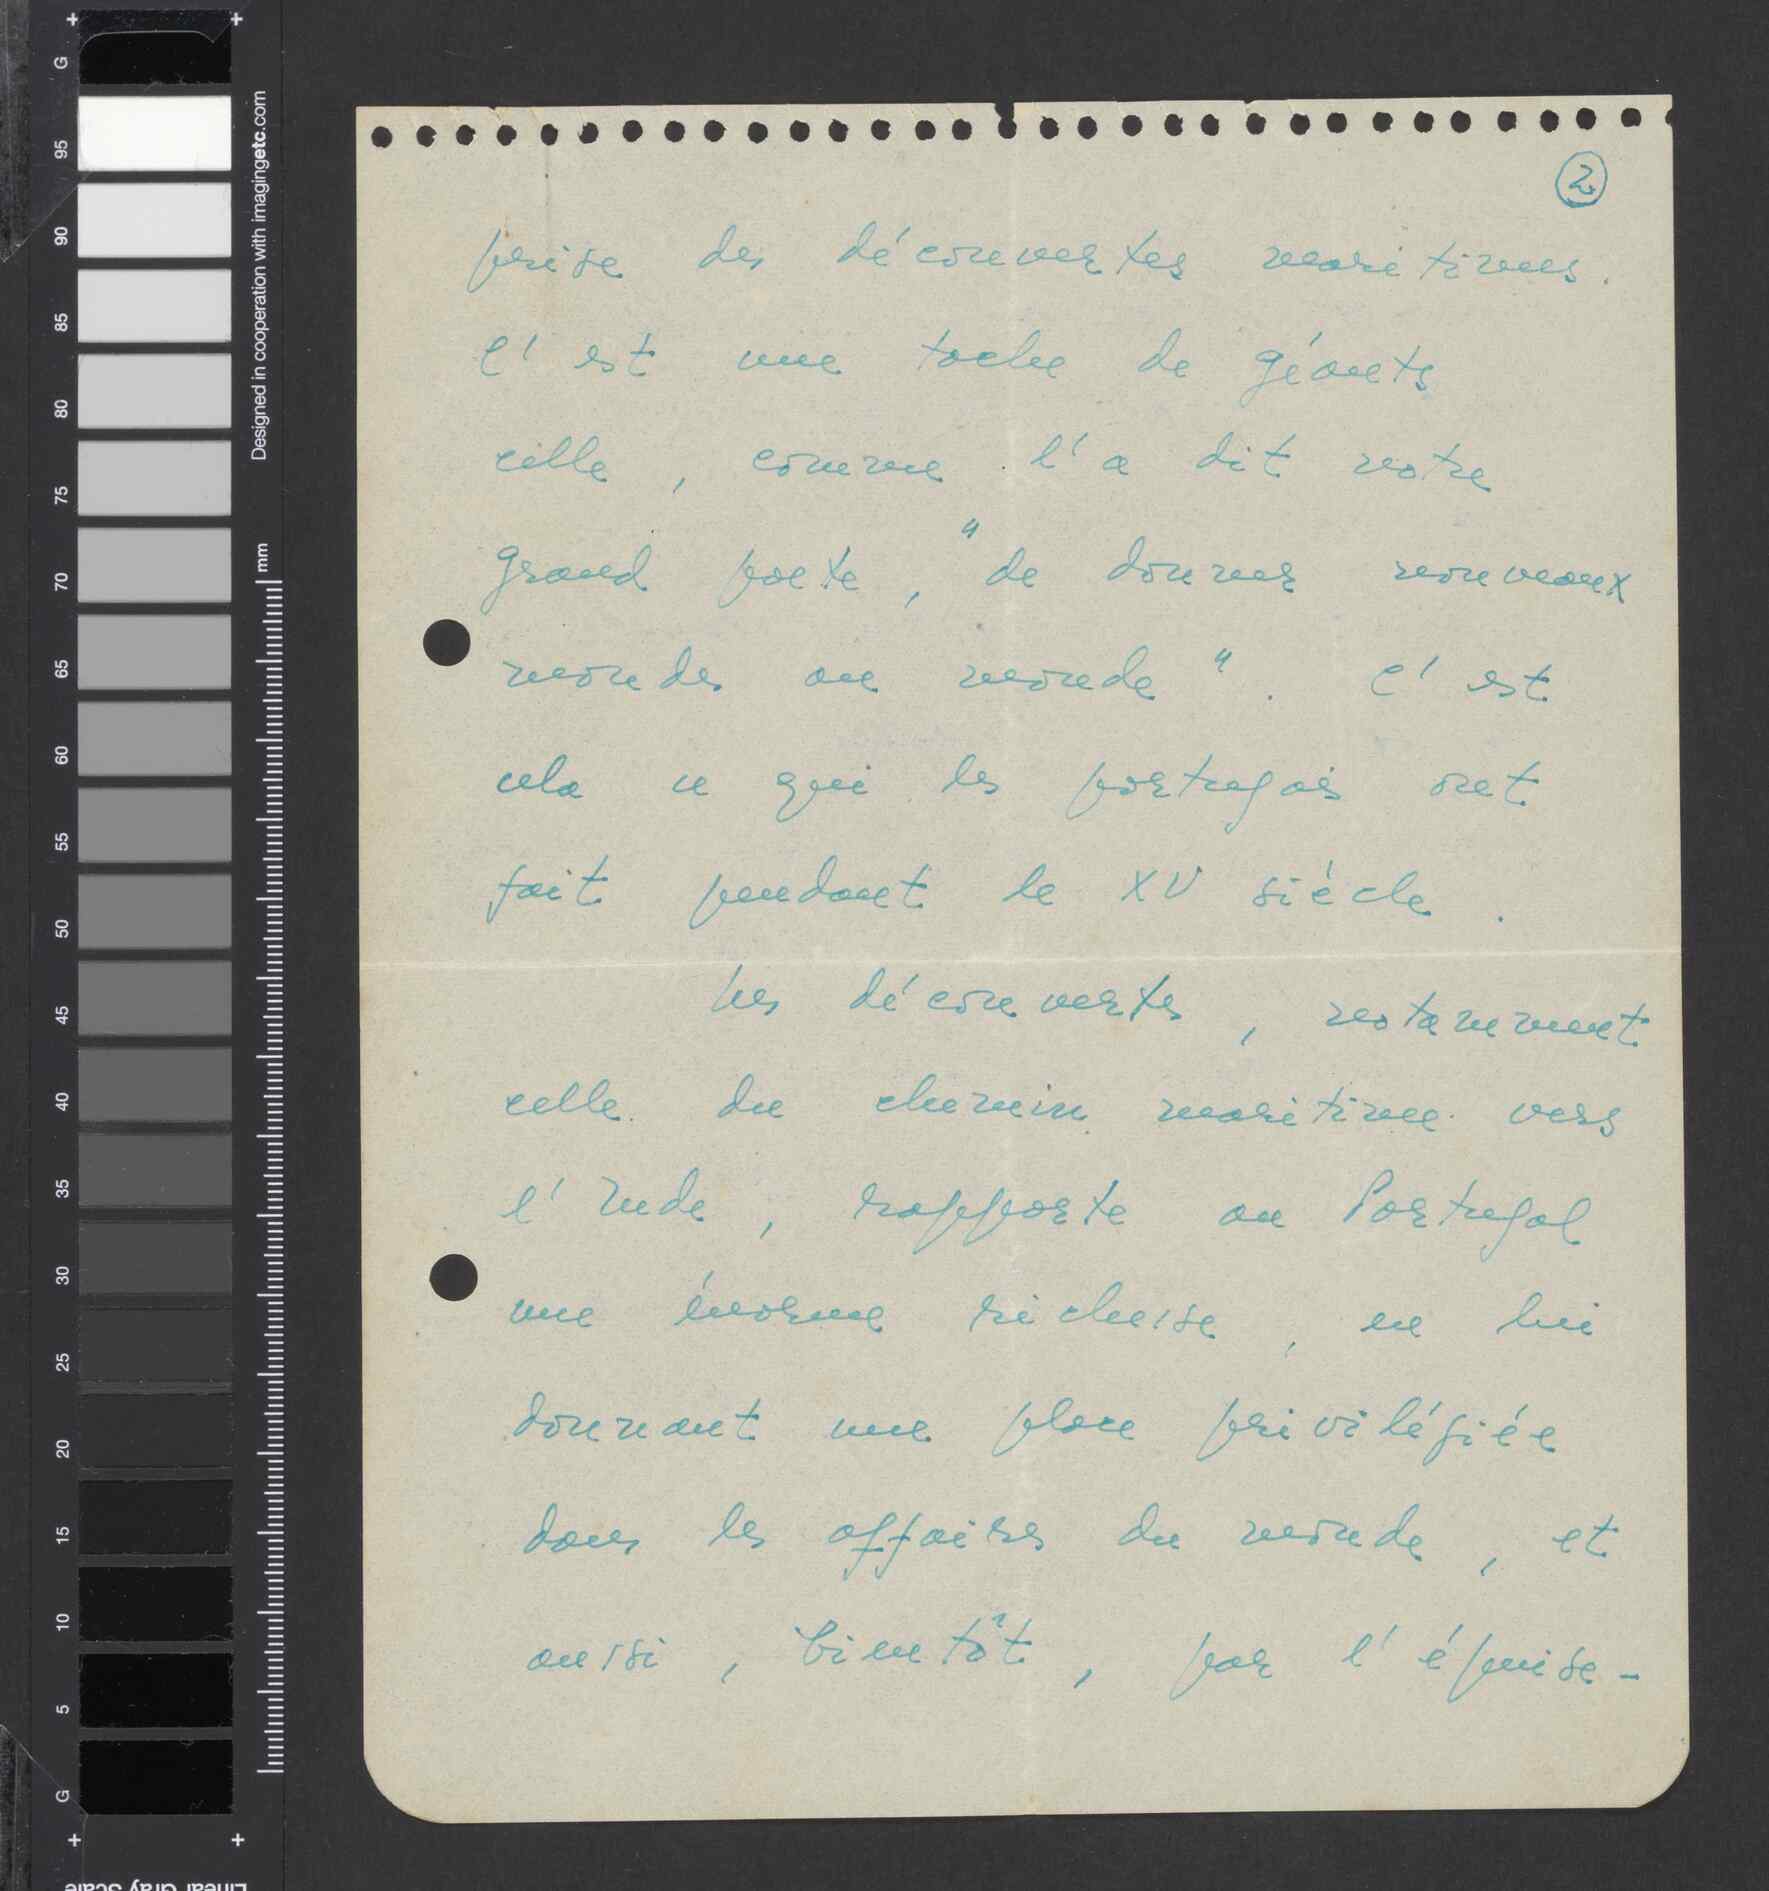 G
95
90
85
80
75
70
65
60
55
50
45
40
35
30
25
20
15
10
5
G
Designed in cooperation with imagingetc.com
mm
Linear Gray Scale
2
prise des découvertes maritimes.
C'est une tache de géants
celle, comme l'a dit notre
grand poete, "de donner nouveaux
mondes au monde". C'est
cela ce que les portugais ont
fait pendant le XV siécle.
Les découvertes, notamment
celle du chemin maritime vers
l'Inde, rapporte au Portugal
une énorme richesse, en lui
donnant une place privilégiée
dans les affaires du monde, et
aussi, bientôt, par l'épuise-